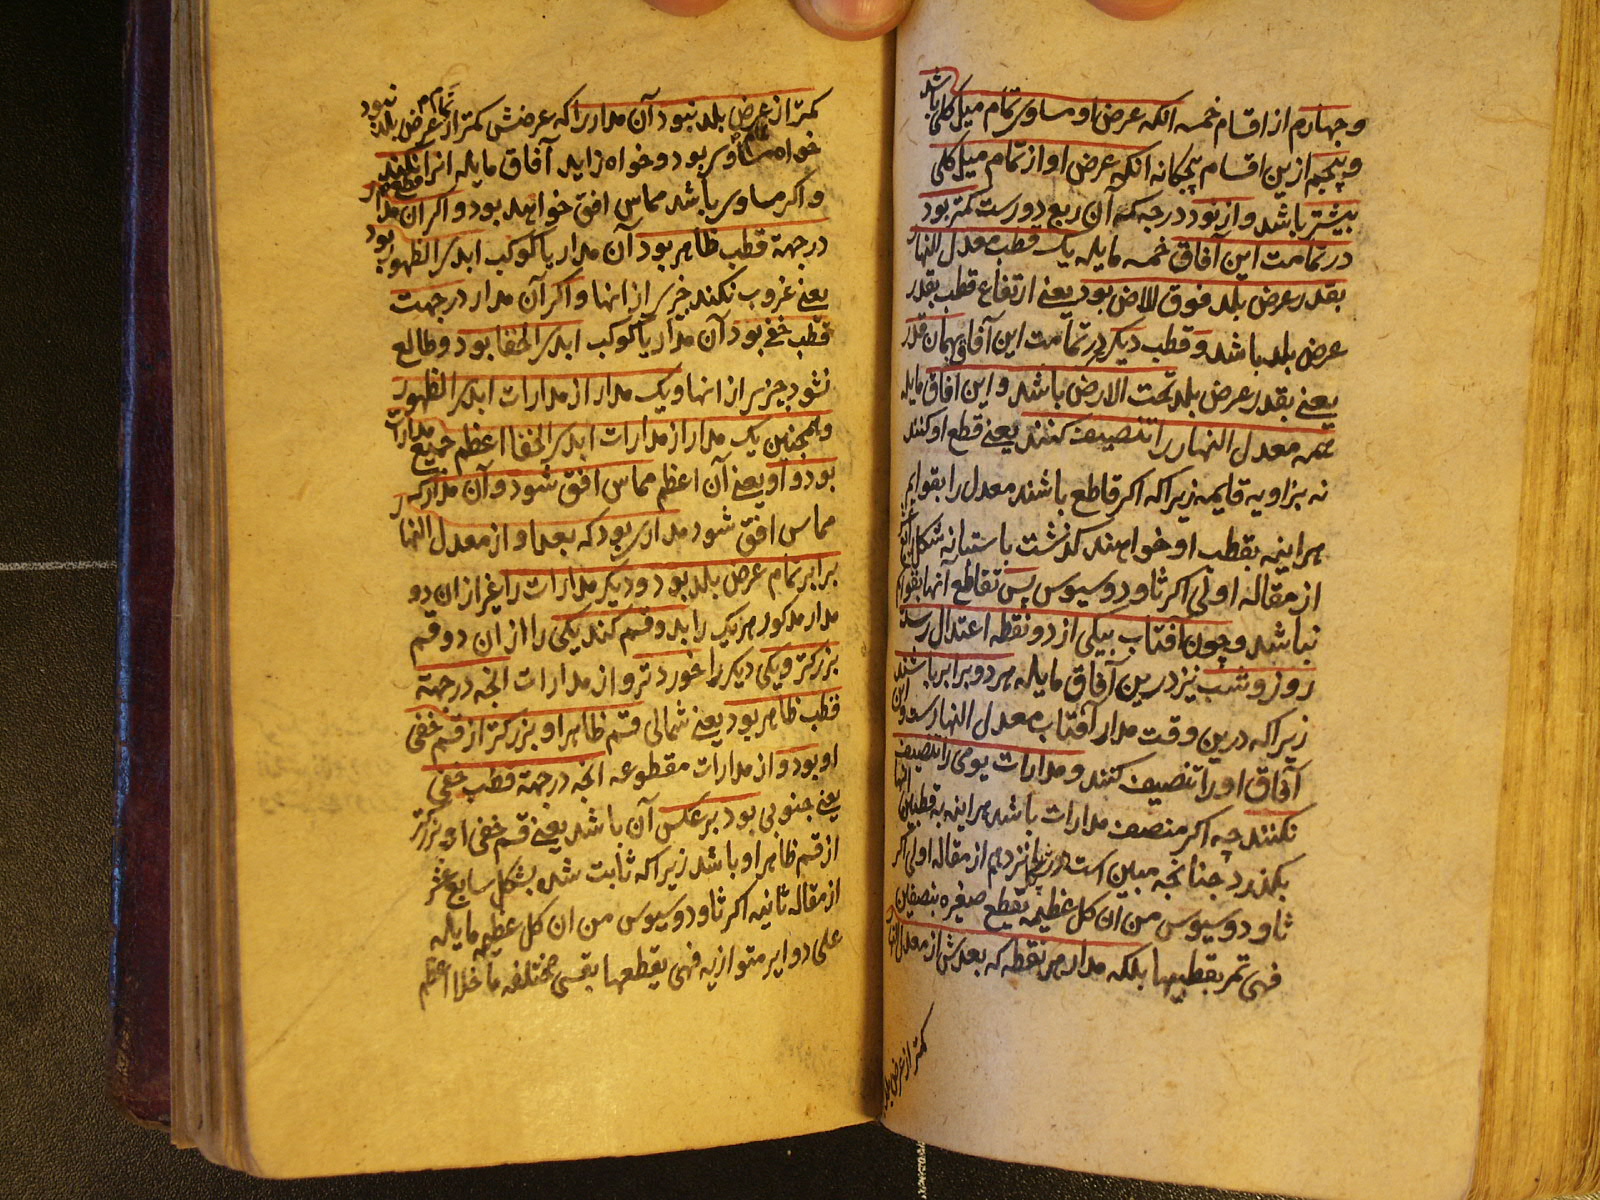 وچهارم از اقسام خمسه انکه عرض او مساوی تمام میل کلی باشد
و پنجم ازین اقسام پنجکانه انکه عرض او از تمام میل کلی
بیشتر باشد و از نود درجه که آن ربع دورست کمتر بود
در تمامت این آفاق خمسه مایله یک قطب معدل النهار
بقدر عرض بلد فوق الارض بود یعنی ارتفاع قطب بقدر
عرض بلد باشد و قطب دیکر در تمامت این آفاق بهمان قدر
یعنی بقدر عرض بلد تحت الارض باشد و این افاق مایله
همه معدل النهار را تنصیف کنند یعنی قطع او کنند
نه بزاویه قایمه زیرا که اکر قاطع باشند معدل را بقوایم
هراینه بقطب او خواهند کذشت باستبانه شکل
از مقاله اولی اکر ثاودوسیوس پس تقاطع آنها بقوایم
نباشد و چون آفتاب بیکی از دو نقطه اعتدال رسد
روز و شب نیز درین آفاق مایله هر دو برابر باشند
زیرا که درین وقت مدار آفتاب معدل النهار بود و این
آفاق او را تنصیف کنند و مدارات یومی را تنصیف
نکنند چه اکر منصف مدارات باشد هراینه به قطبین انها
بکذرد چنانچه مبین است در شکل شانزدهم از مقاله اولی اکر
ثاودوسیوس من ان کل عظیمه تقطع صغیره بنصفین
فهی تمر بقطبیها بلکه مدار هر نقطه که بعدش از معدل النهار
کمتر از عرض بلد
کمتر از عرض بلد نبود آن مدار را که عرضش کمتر از تمام عرض بلد نبود
خواه مساوی بود و خواه زاید آفاق مایله انرا قطع نکنند
و اکر مساوی باشد مماس افق خواهد بود و اکر ان مدار
در جهة قطب ظاهر بود آن مدار یا کوکب ابدی الظهور بود
یعنی غروب نکند جزیی از انها و اکر آن مدار در جهت
قطب خفی بود آن مدار یا کوکب ابدی الخفا بود و طالع
نشود جزیی از انها و یک مدار از مدارات ابدی الظهور
و همچنین یک مدار از مدارات ابدی الخفا اعظم جمیع مدارات
بود و او یعنی آن اعظم مماس افق شود و آن مدار که
مماس افق شود مداری بود که بعد او از معدل النهار
برابر تمام عرض بلد بود و دیکر مدارات را غیر از ان دو
مدار مذکور هر یک را بدو قسم کند یکی را از ان دو قسم
بزرکتر و یکی دیکر را خوردتر و از مدارات انچه در جهة
قطب ظاهر بود یعنی شمالی قسم ظاهر او بزرکتر از قسم خفی
او بود و از مدارات مقطوعه انچه در جهة قطب خفی
یعنی جنوبی بود بر عکس آن باشد یعنی قسم خفی او بزرکتر
از قسم ظاهر او باشد زیرا که ثابت شده بشکل سابع عشر
از مقاله ثانیه اکر ثاودوسیوس من ان کل عظیمه مایله
علی دوایر متوازیه فهی یقطعها بقسی مختلفه ما خلا اعظم